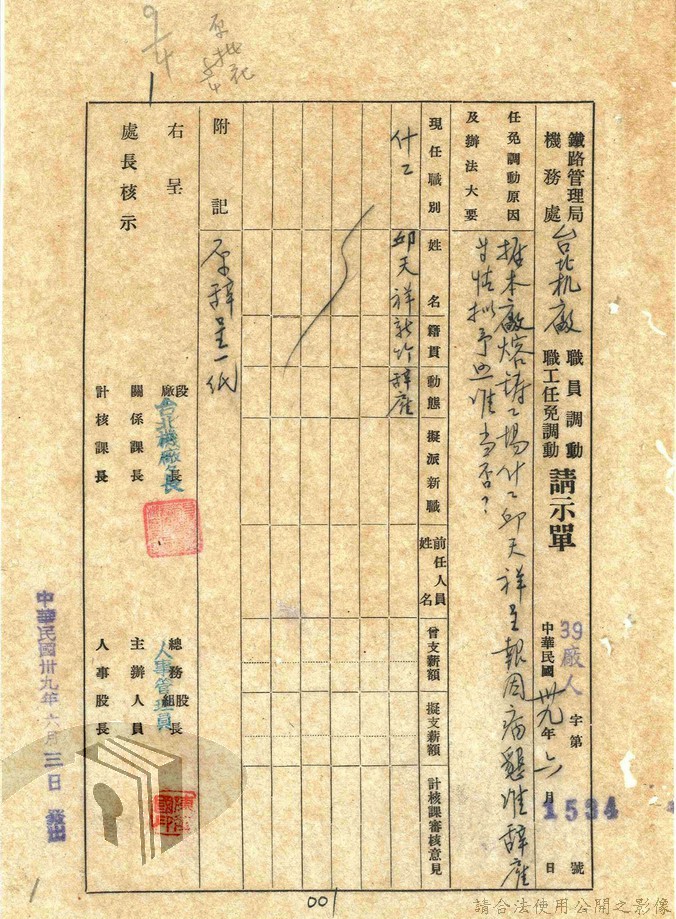 鐵路管理局
機務處
台北机廠
職員調動
職工任免調動
請示單
39廠人字第1534號
中華民國卅九年六月 日
任免調動原因
及辦法大要
據本廠熔鑄工場什工邱天祥呈報因病懇准辭雇
等情擬予照准當否?
現任職別
姓名
籍貫
動態
擬派新職
前任人員姓名
曾支薪額
擬支薪額
計核課審核意見
什工
邱天祥
新竹
辭雇
附記
原辭呈一紙
右呈
處長核示
段廠長
台北機廠長
關係課長
計核課長
總務股組長
人事管理員
主辦人員
人事股長
中華民國卅九年六月三日發出
9/4
1
001
請合法使用公開之影像